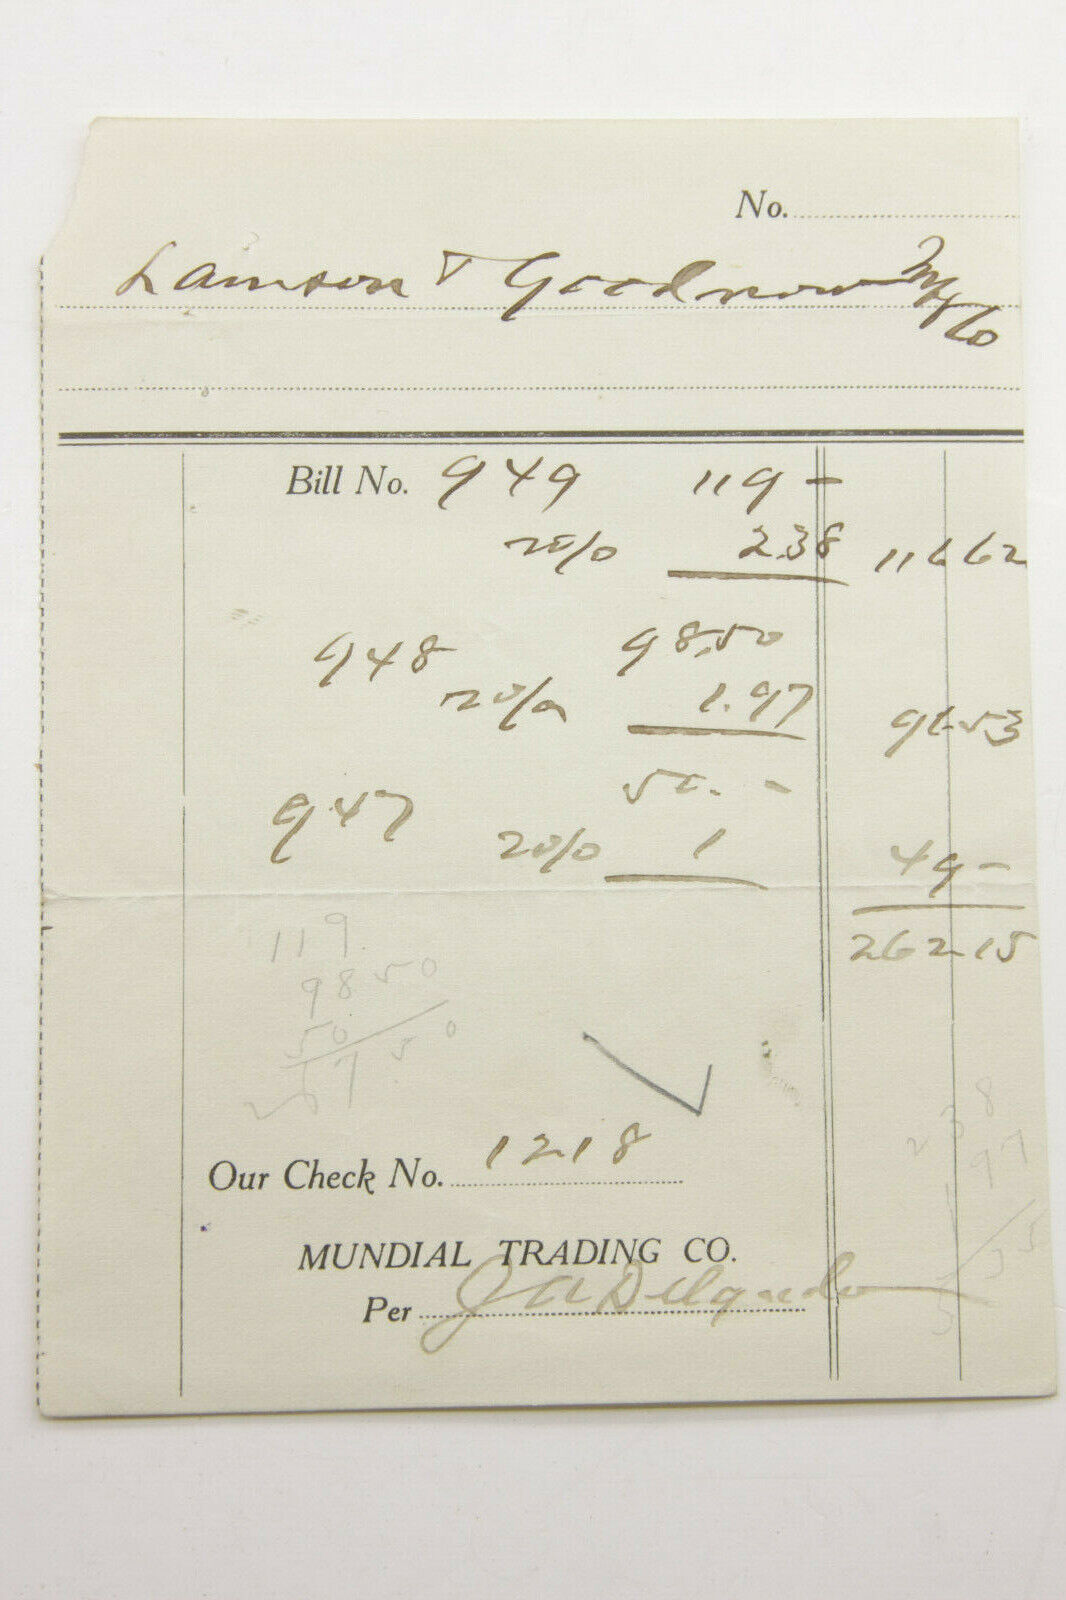 No.
Lamson & Goodnow Mfg Co
Bill No. 949 119 -
2% 2.38 116 62
948 98.50
2% 1.97 96 53
947 50. -
2% 1 49 -
262 15
119
98 50
50
267 50
2 38
1 97
1
5 35
Our Check No. 1218
MUNDIAL TRADING CO.
Per J A Delgado